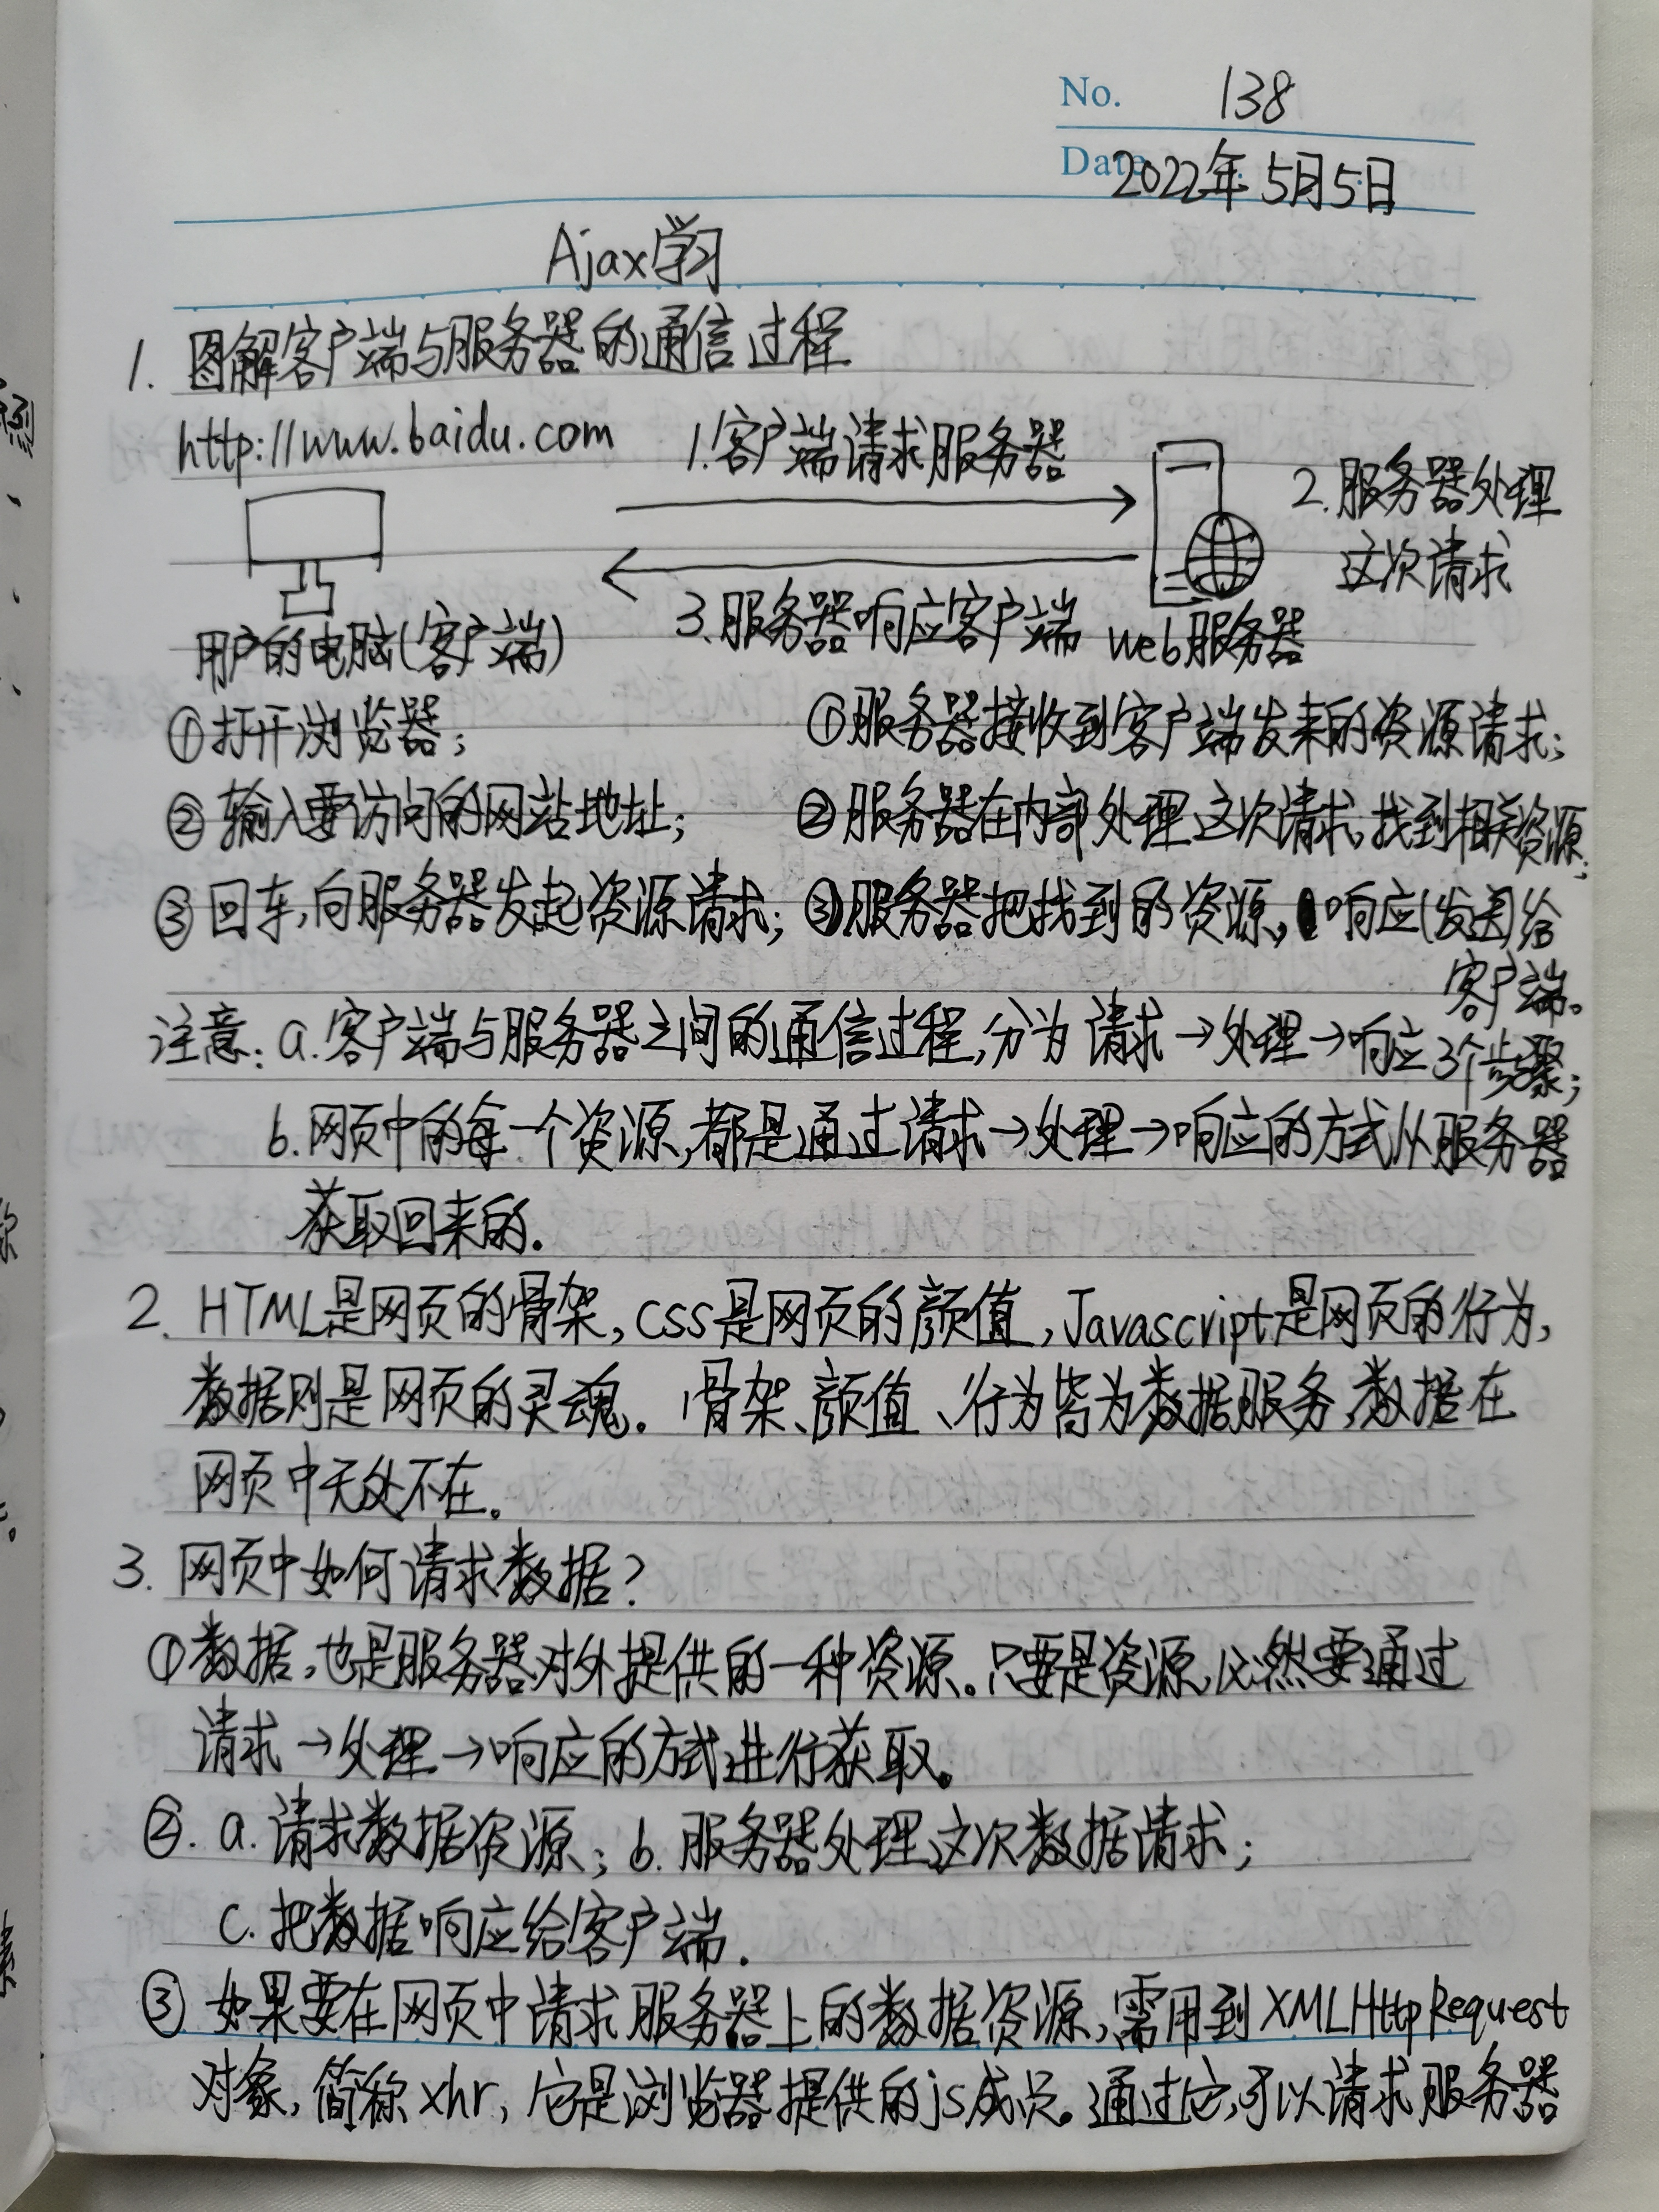 No. 138
Date 2022年5月5日
Ajax学习
1. 图解客户端与服务器的通信过程
http://www.baidu.com 1.客户端请求服务器
2.服务器处理
这次请求
3.服务器响应客户端 web服务器
用户的电脑(客户端)
①打开浏览器; ①服务器接收到客户端发来的资源请求;
②输入要访问的网站地址; ②服务器在内部处理这次请求。找到相关资源;
③回车,向服务器发起资源请求; ③服务器把找到的资源,响应(发送)给
客户端。
注意: a.客户端与服务器之间的通信过程,分为 请求→处理→响应3个步骤;
b.网页中的每一个资源,都是通过请求→处理→响应的方式从服务器
获取回来的.
2. HTML是网页的骨架,css是网页的颜值,Javascript是网页的行为,
数据则是网页的灵魂. 骨架、颜值、行为皆为数据服务,数据在
网页中无处不在。
3. 网页中如何请求数据?
①数据,也是服务器对外提供的一种资源。只要是资源,必然要通过
请求→处理→响应的方式进行获取。
②. a.请求数据资源; b.服务器处理这次数据请求;
c.把数据响应给客户端.
③ 如果要在网页中请求服务器上的数据资源,需用到XMLHttpRequest
对象,简称xhr,它是浏览器提供的js成员。通过它,可以请求服务器